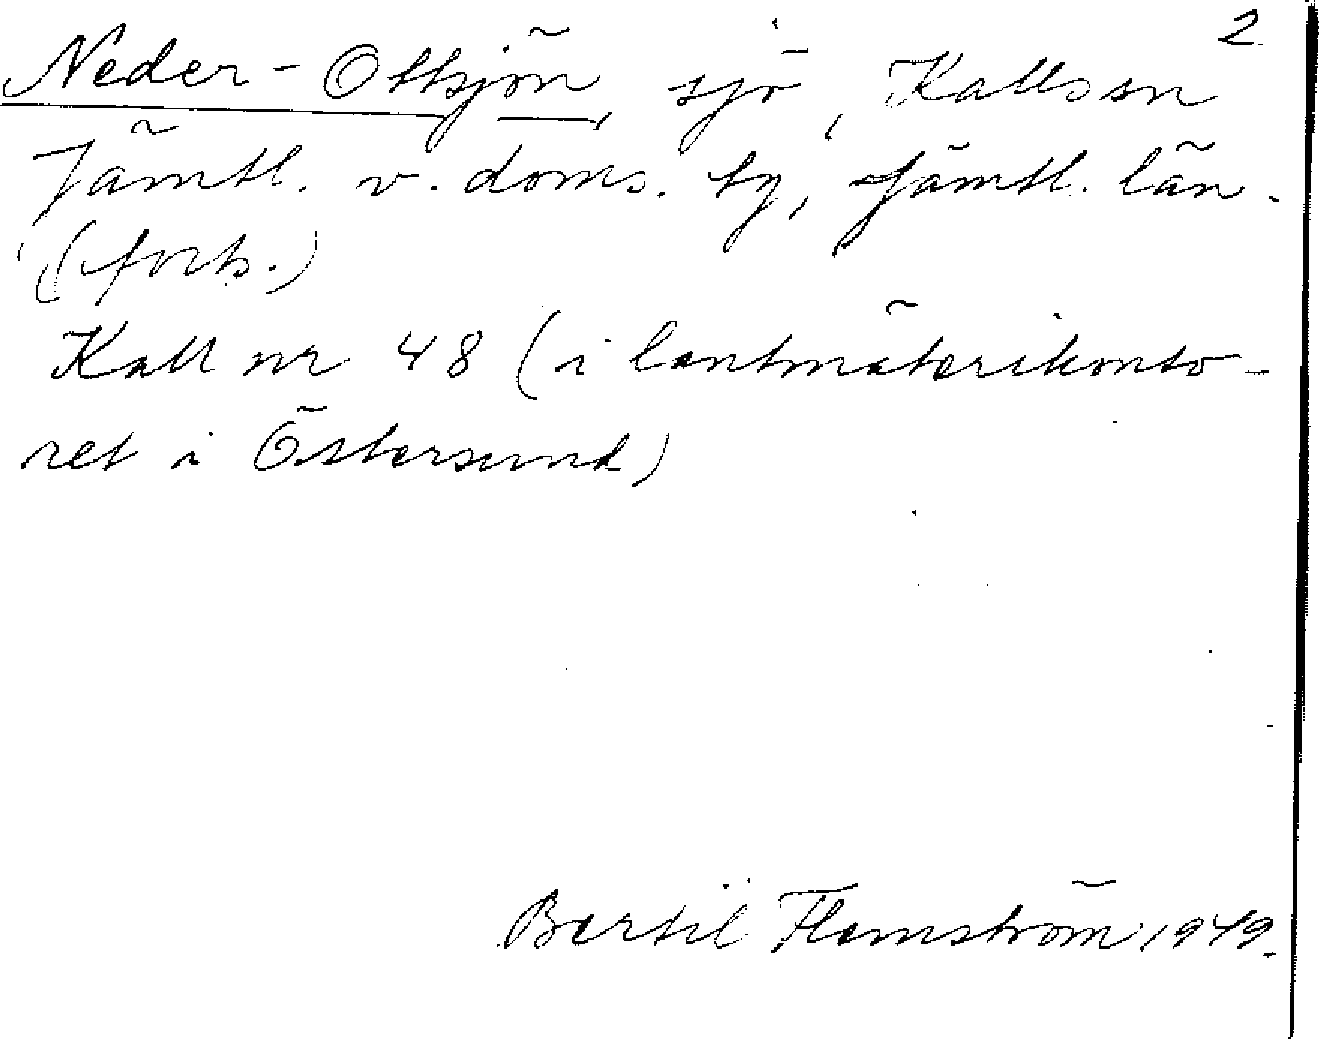 2
Neder-Oltsjön, sjö, Kalls sn
Jämtl. v. doms. tg, Jämtl. län.
(forts.)
Kall nr 48 (i lantmäterikonto-
ret i Östersund)
Bertil Flemström 1949.